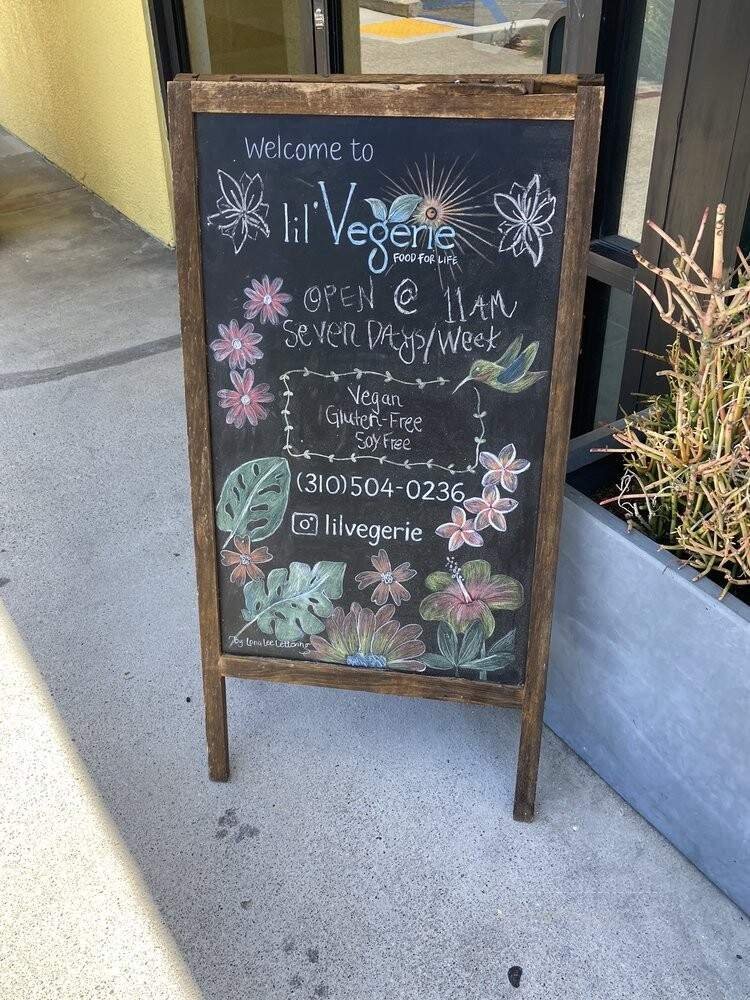 Welcome to
lil' Vegerie
FOOD FOR LIFE
OPEN @ 11AM
Seven Days/Week
Vegan
Gluten-Free
Soy Free
(310)504-0236
lilvegerie
By Lona Lee Lettering